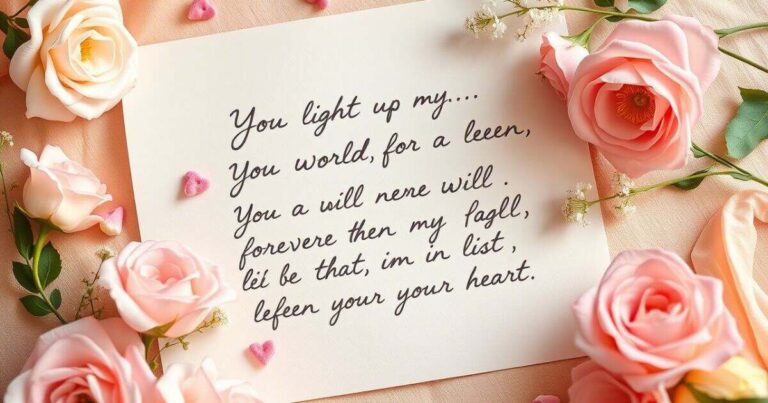 You light up my....
You world, for a leeen,
You a will nerе will .
forevere then my fagll,
lei be that, im in list ,
lefeen your your heart.